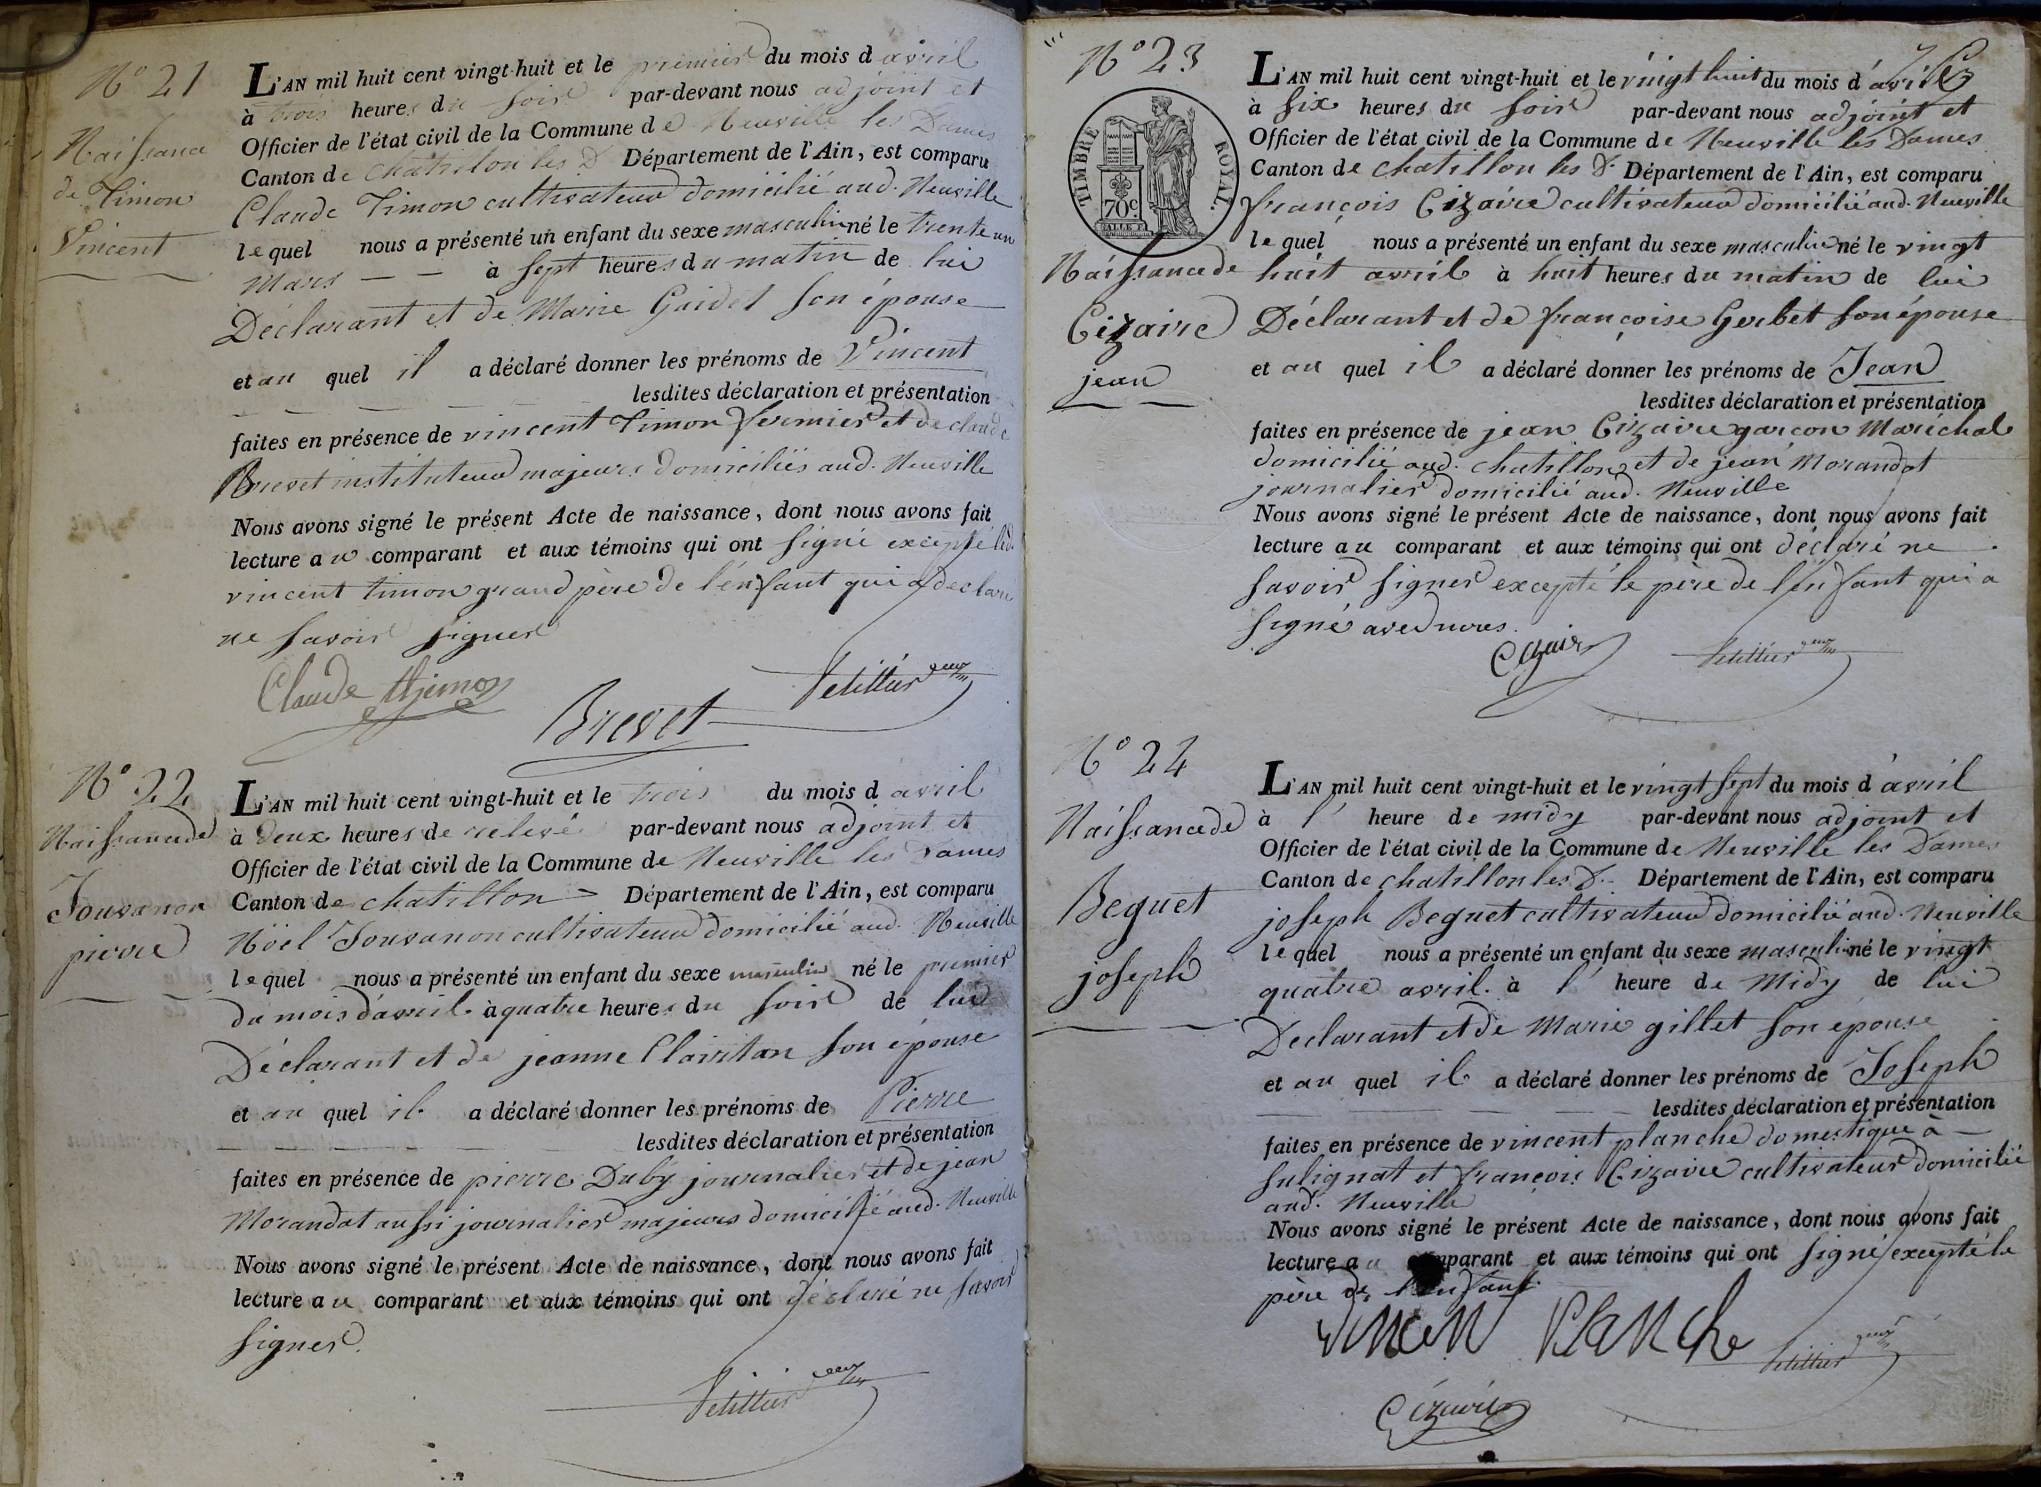 N° 21
Naissance
de Timon
Vincent
L'AN mil huit cent vingt-huit et le premier du mois d avril
à trois heures du soir par-devant nous adjoint et
Officier de l'état civil de la Commune de Neuville les Dames
Canton de chatillon les D. Département de l'Ain, est comparu
Claude Timon cultivateur domicilié aud. Neuville
lequel nous a présenté un enfant du sexe masculin né le trente un
Mars — — à sept heures du matin de lui
Déclarant et de Marie Gaidet son épouse
et au quel il a déclaré donner les prénoms de Vincent
lesdites déclaration et présentation
faites en présence de vincent Timon fermier et de claude
Brevet instituteur majeurs domiciliés aud. Neuville
Nous avons signé le présent Acte de naissance, dont nous avons fait
lecture au comparant et aux témoins qui ont signé excepté led.
vincent timon grand père de l'enfant qui a declaré
ne savoir signer
Claude thimon
Brevet
Petillier
N° 22
Naissance de
Jouvanon
pierre
L'AN mil huit cent vingt-huit et le trois du mois d avril
à deux heures de relevée par-devant nous adjoint et
Officier de l'état civil de la Commune de Neuville les Dames
Canton de chatillon = Département de l'Ain, est comparu
Nöel Jouvanon cultivateur domicilié aud. Neuville
lequel nous a présenté un enfant du sexe masculin né le premier
du mois d'avril à quatre heures du soir de lui
Déclarant et de jeanne Clairtan son épouse
et au quel il a déclaré donner les prénoms de Pierre
lesdites déclaration et présentation
faites en présence de pierre Duby journalier et de jean
Morandat aussi journalier majeurs domicilié aud. Neuville
Nous avons signé le présent Acte de naissance, dont nous avons fait
lecture au comparant et aux témoins qui ont déclaré ne savoir
signer.
Petillier
N° 23
TIMBRE ROYAL.
70c
Naissance de
Cizaire
jean
L'AN mil huit cent vingt-huit et le vingt huit du mois d'avril
à six heures du soir par-devant nous adjoint et
Officier de l'état civil de la Commune de Neuville les Dames
Canton de chatillon les D. Département de l'Ain, est comparu
françois Cizaire cultivateur domicilié aud. Neuville
lequel nous a présenté un enfant du sexe masculin né le vingt
huit avril à huit heures du matin de lui
Déclarant et de françoise Gerbet son épouse
et au quel il a déclaré donner les prénoms de Jean
lesdites déclaration et présentation
faites en présence de jean Cizaire garçon Maréchal
domicilié aud. chatillon et de jean Morandat
journalier domicilié aud. Neuville
Nous avons signé le présent Acte de naissance, dont nous avons fait
lecture au comparant et aux témoins qui ont déclaré ne
savoir signer excepté le père de l'enfant qui a
signé avec nous.
Cizaire
Petillier
N° 24
Naissance de
Beguet
joseph
L'AN mil huit cent vingt-huit et le vingt sept du mois d'avril
à l' heure de midy par-devant nous adjoint et
Officier de l'état civil de la Commune de Neuville les Dames
Canton de chatillon les D. Département de l'Ain, est comparu
joseph Beguet cultivateur domicilié aud. Neuville
lequel nous a présenté un enfant du sexe masculin né le vingt
quatre avril. à l' heure de Midy de lui
Declarant et de Marie gillet son épouse
et au quel il a déclaré donner les prénoms de Joseph
lesdites déclaration et présentation
faites en présence de vincent planche domestique à —
sulignat et françois Cizaire cultivateur domicilié
aud. Neuville
Nous avons signé le présent Acte de naissance, dont nous avons fait
lecture au comparant et aux témoins qui ont signé excepté le
père de l'enfant.
vincen Planche
Petillier
Cizaire